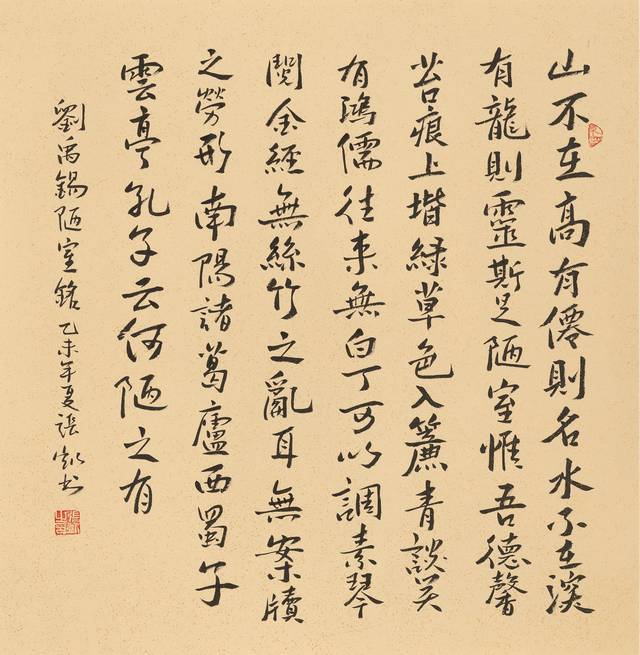 山不在高有僊則名水不在深
有龍則靈斯是陋室惟吾德馨
苔痕上堦綠草色入簾青談笑
有鴻儒往来無白丁可以調素琴
閱金經無絲竹之亂耳無案牘
之勞形南陽諸葛廬西蜀子
雲亭孔子云何陋之有
劉禹錫陋室銘 乙未年夏張書